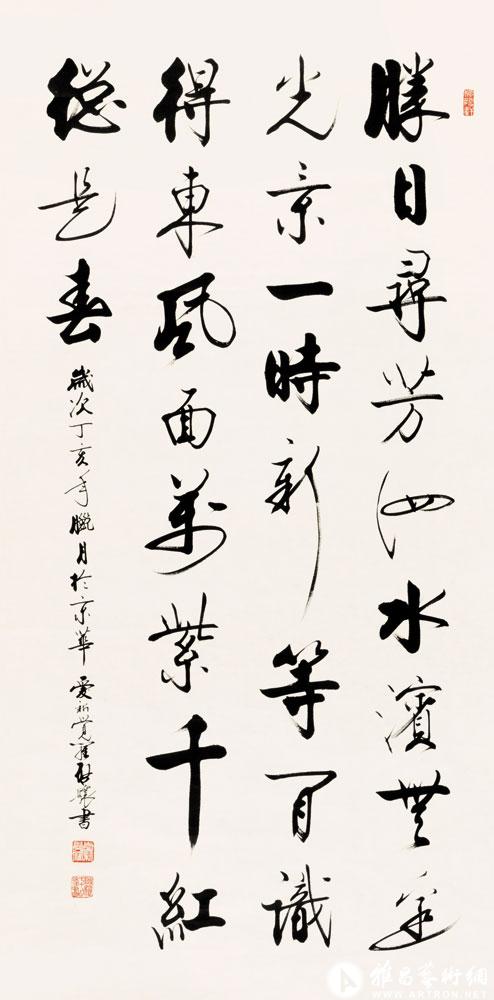 勝日尋芳泗水濱無邊
光景一時新等閒識
得東風面萬紫千紅
總是春
歲次丁亥年臘月於京華 愛新覺羅啟驤書
雅昌藝術網
WWW.ARTRON.NET